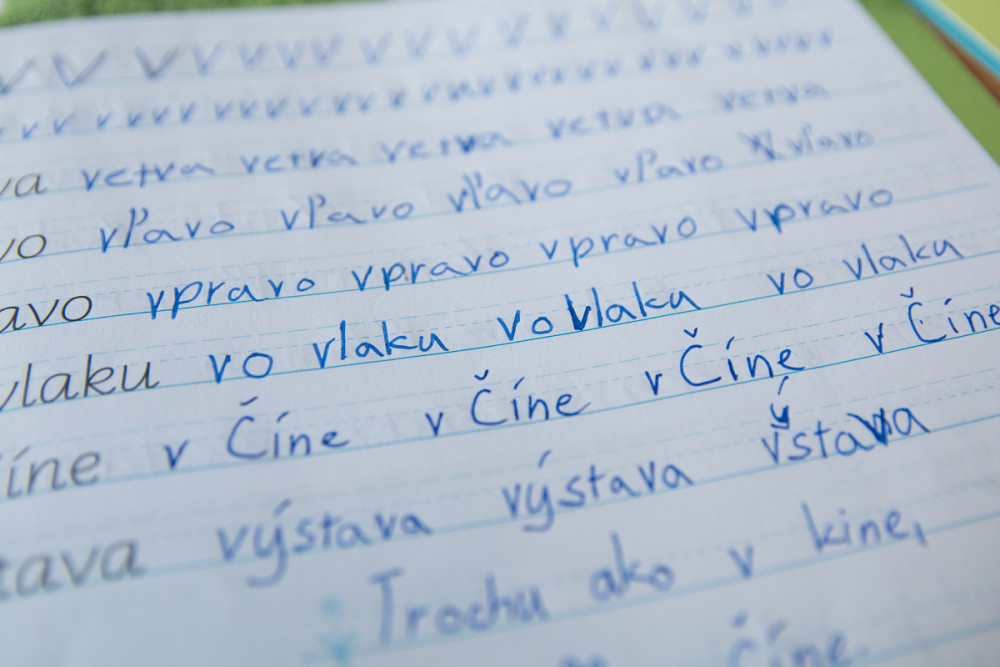 V V V V V V V V V V V V V
v v v v v v v v v v v v v v v v v v v v
va vetva vetva vetva vetva vetva
vo vľavo vľavo vľavo vľavo vľavo
avo vpravo vpravo vpravo vpravo
vlaku vo vlaku vo vlaku vo vlaku
íne v Číne v Číne v Číne v Číne
tava výstava výstava výstava
Trochu ako v kine,
Číne.